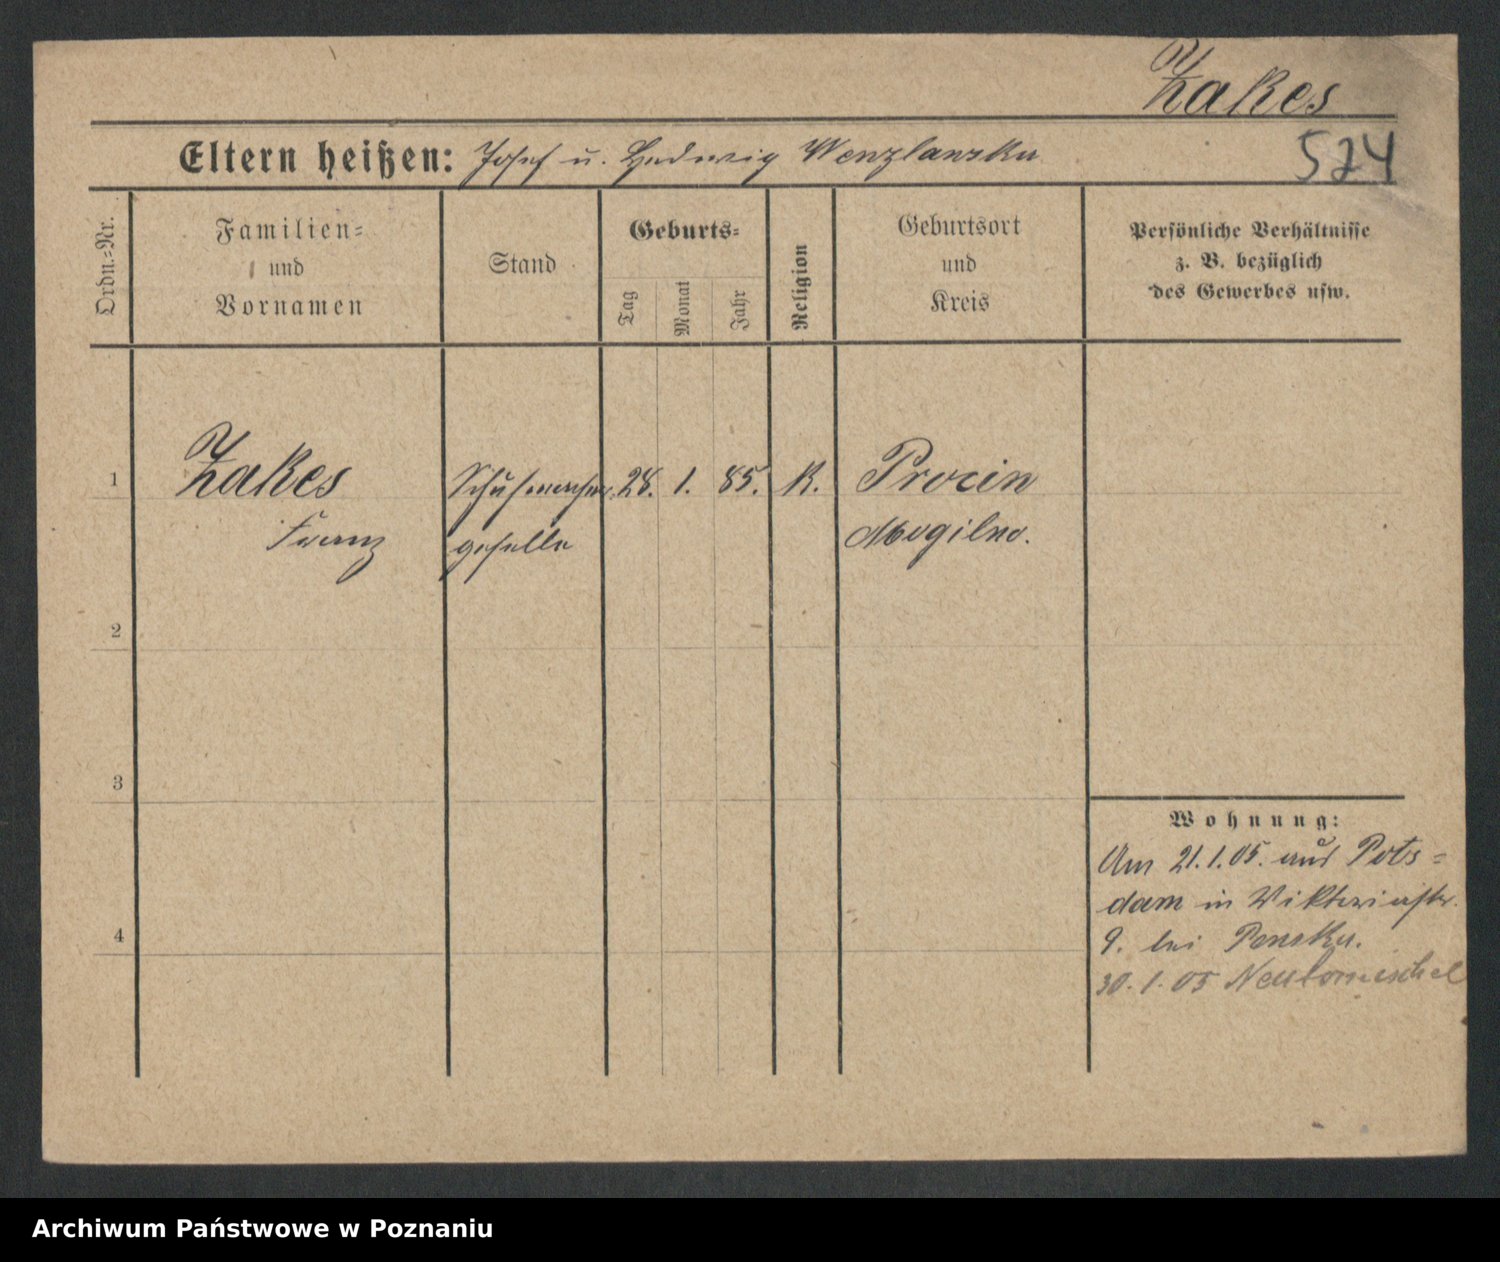 Zakes
Eltern heißen: Josef u. Hedwig Wenzlanska
524
Ordn.-Nr.
Familien-
und
Vornamen
Stand
Geburts-
Tag
Monat
Jahr
Religion
Geburtsort
und
Kreis
Persönliche Verhältnisse
z. B. bezüglich
des Gewerbes usw.
1 Zakes Schuhmacher 28. 1. 85. K. Procin
Franz geselle Mogilno.
2
3
Wohnung:
Am 21.1.05. aus Pots-
dam in Viktoriastr.
4
9. bei
30.1.05 Neutomischel
Archiwum Państwowe w Poznaniu